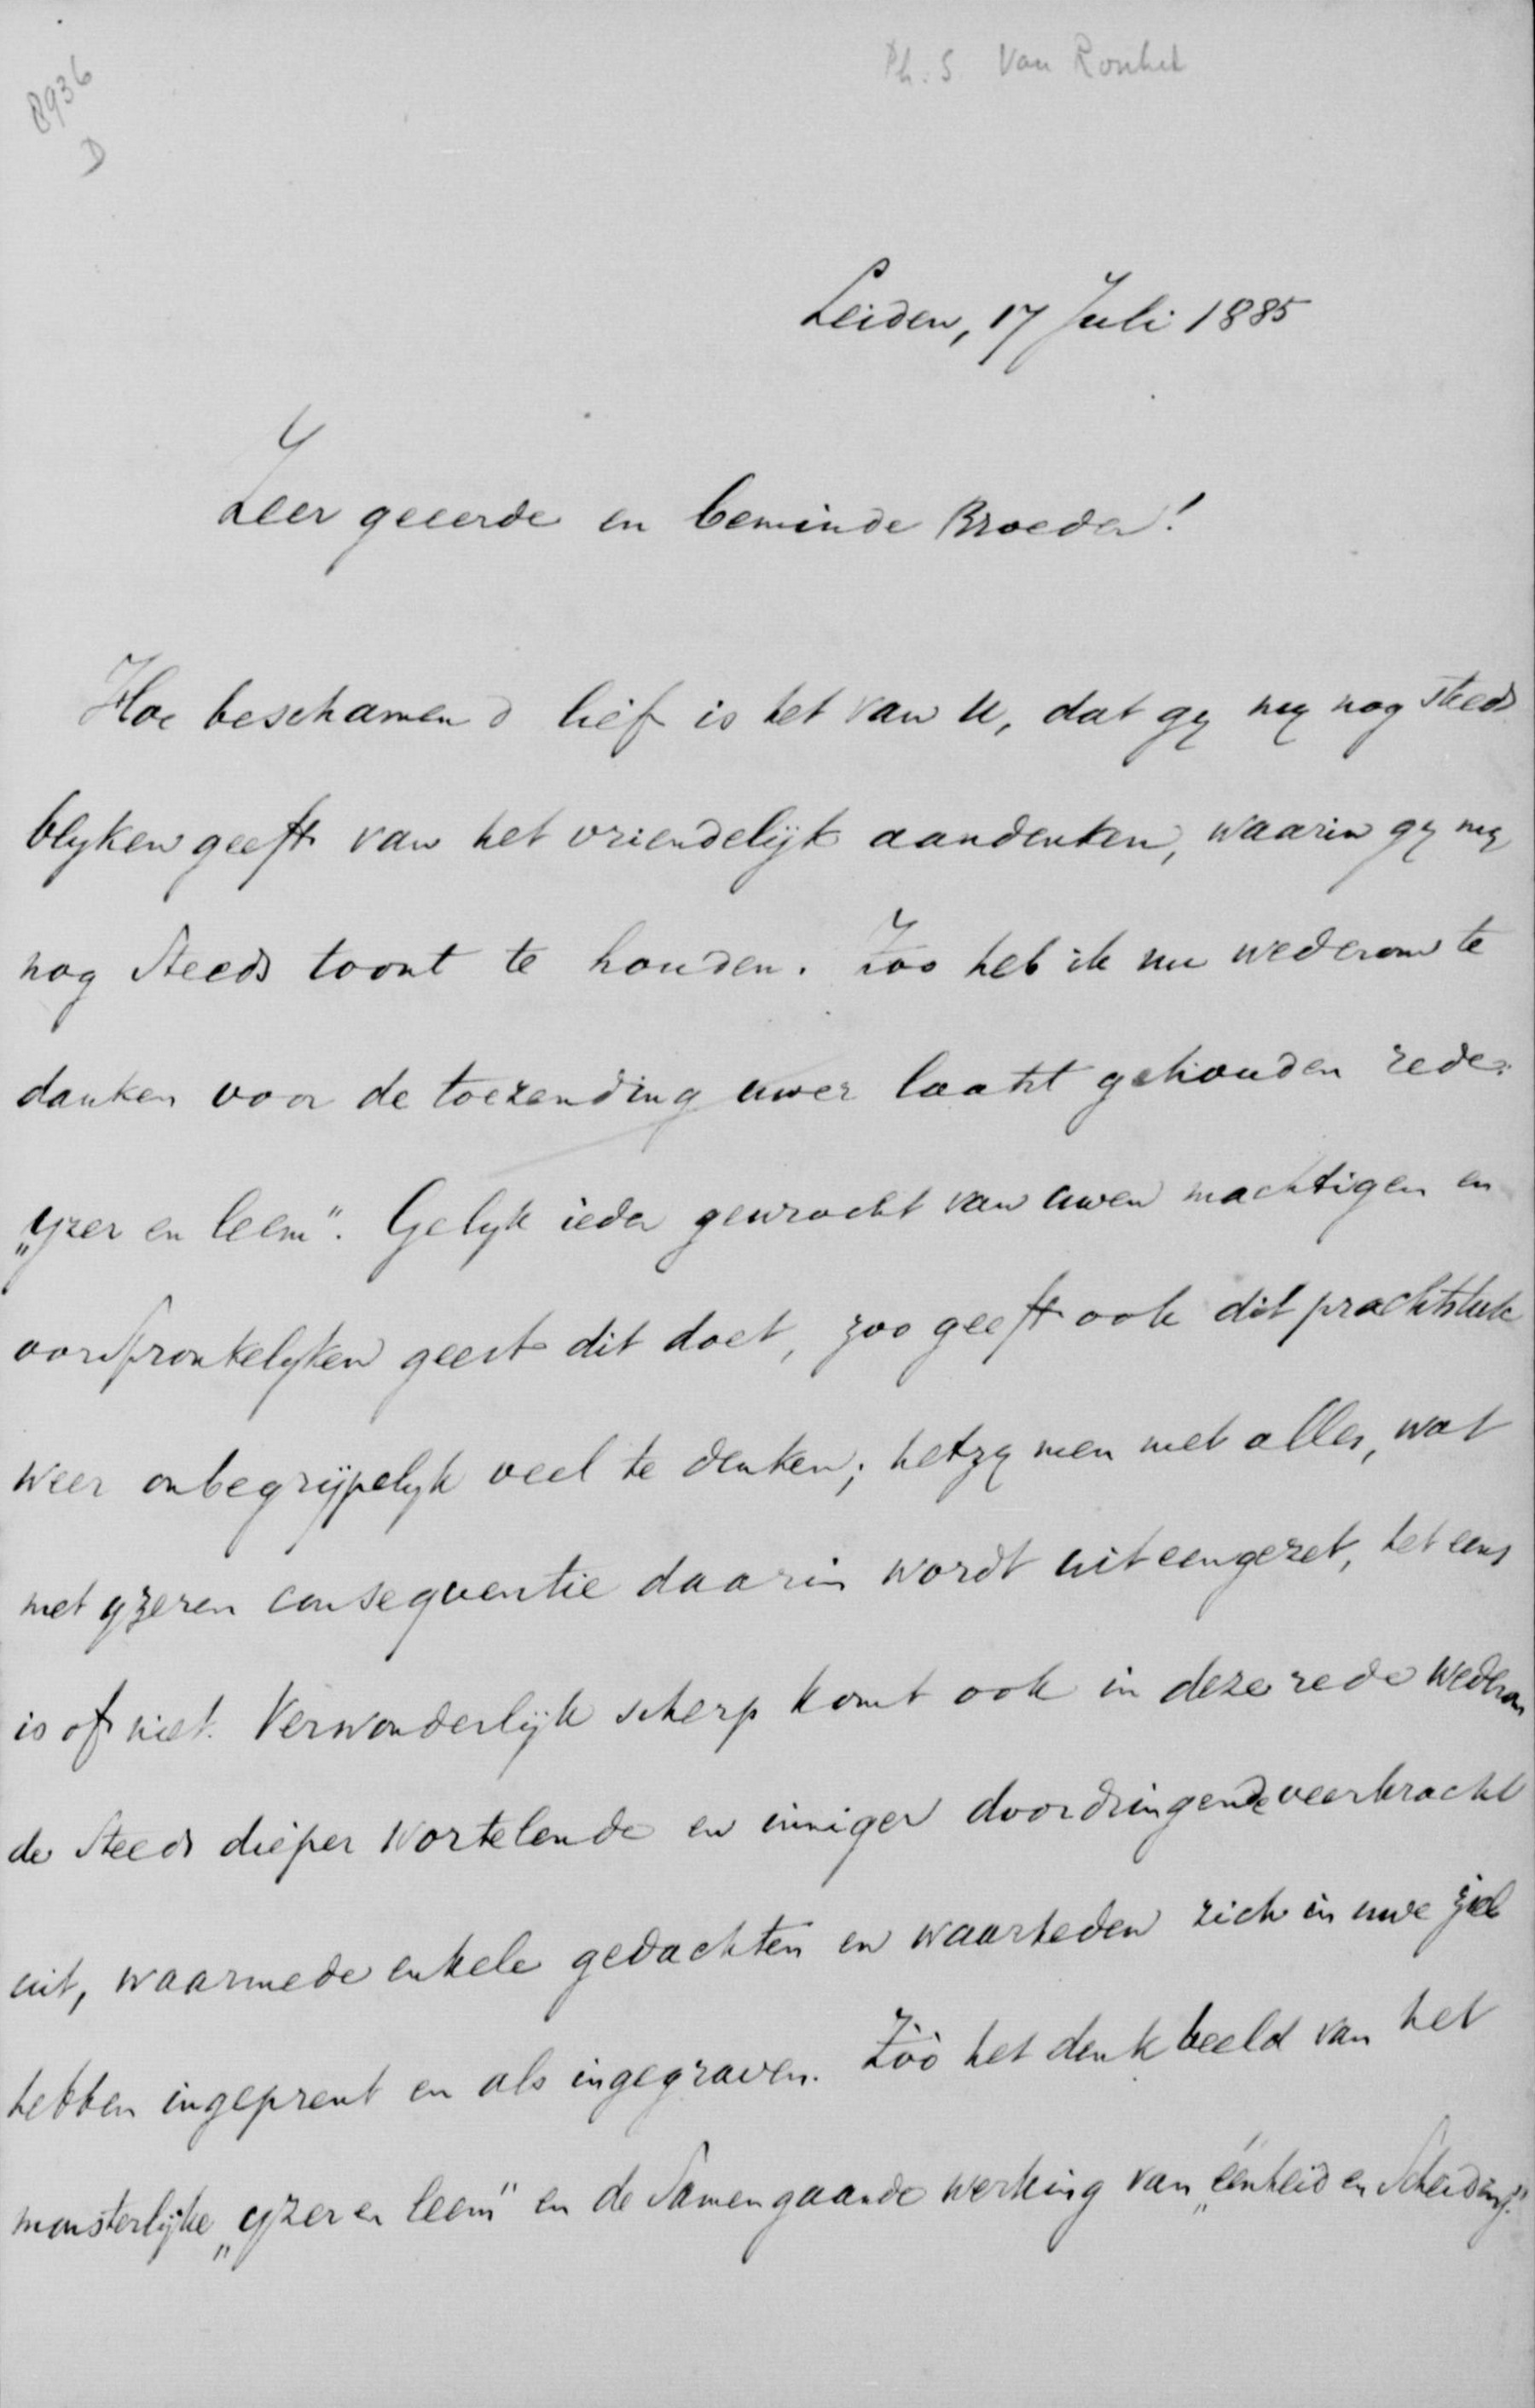 Ph. S. van Ronkel
8936
D
Leiden, 17 Juli 1885
Zeer geeerde en beminde Broeder!
Hoe beschamend lief is het van U, dat gy my nog steeds
blyken geeft van het vriendelijk aandenken, waarin gy my
nog steeds toont te houden. Zoo heb ik nu wederom te
danken voor de toezending uwer laatst gehouden rede:
„Yzer en leem". Gelyk ieder gewrocht van uwen machtigen en
oorspronkelyken geest dit doet, zoo geeft ook dit prachtstuk
weer onbegrijpelyk veel te denken; hetzy men met alles, wat
met yzeren consequentie daarin wordt uiteengezet, het eens
is of niet. Verwonderlijk scherp komt ook in deze rede wederom
de steeds dieper wortelende en inniger doordringende veerkracht
uit, waarmede enkele gedachten en waarheden zich in uwe ziel
hebben ingeprent en als ingegraven. Zóó het denkbeeld van het
monsterlijke „yzer en leem" en de samengaande werking van „éénheid en scheiding."